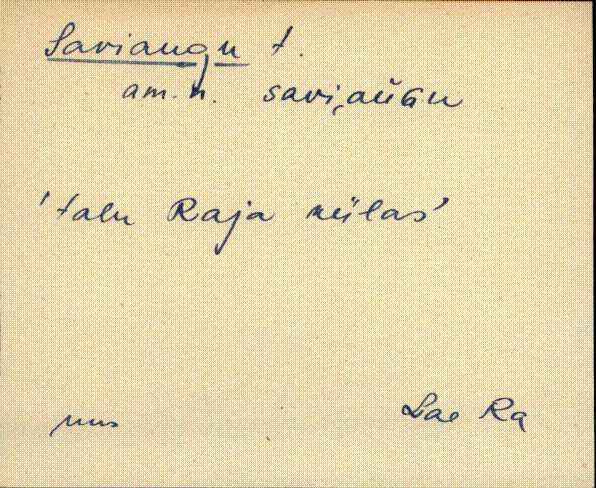 Saviaugu t.
am.n. savi,aŭGu
'talu Raja külas'
Lae Ra